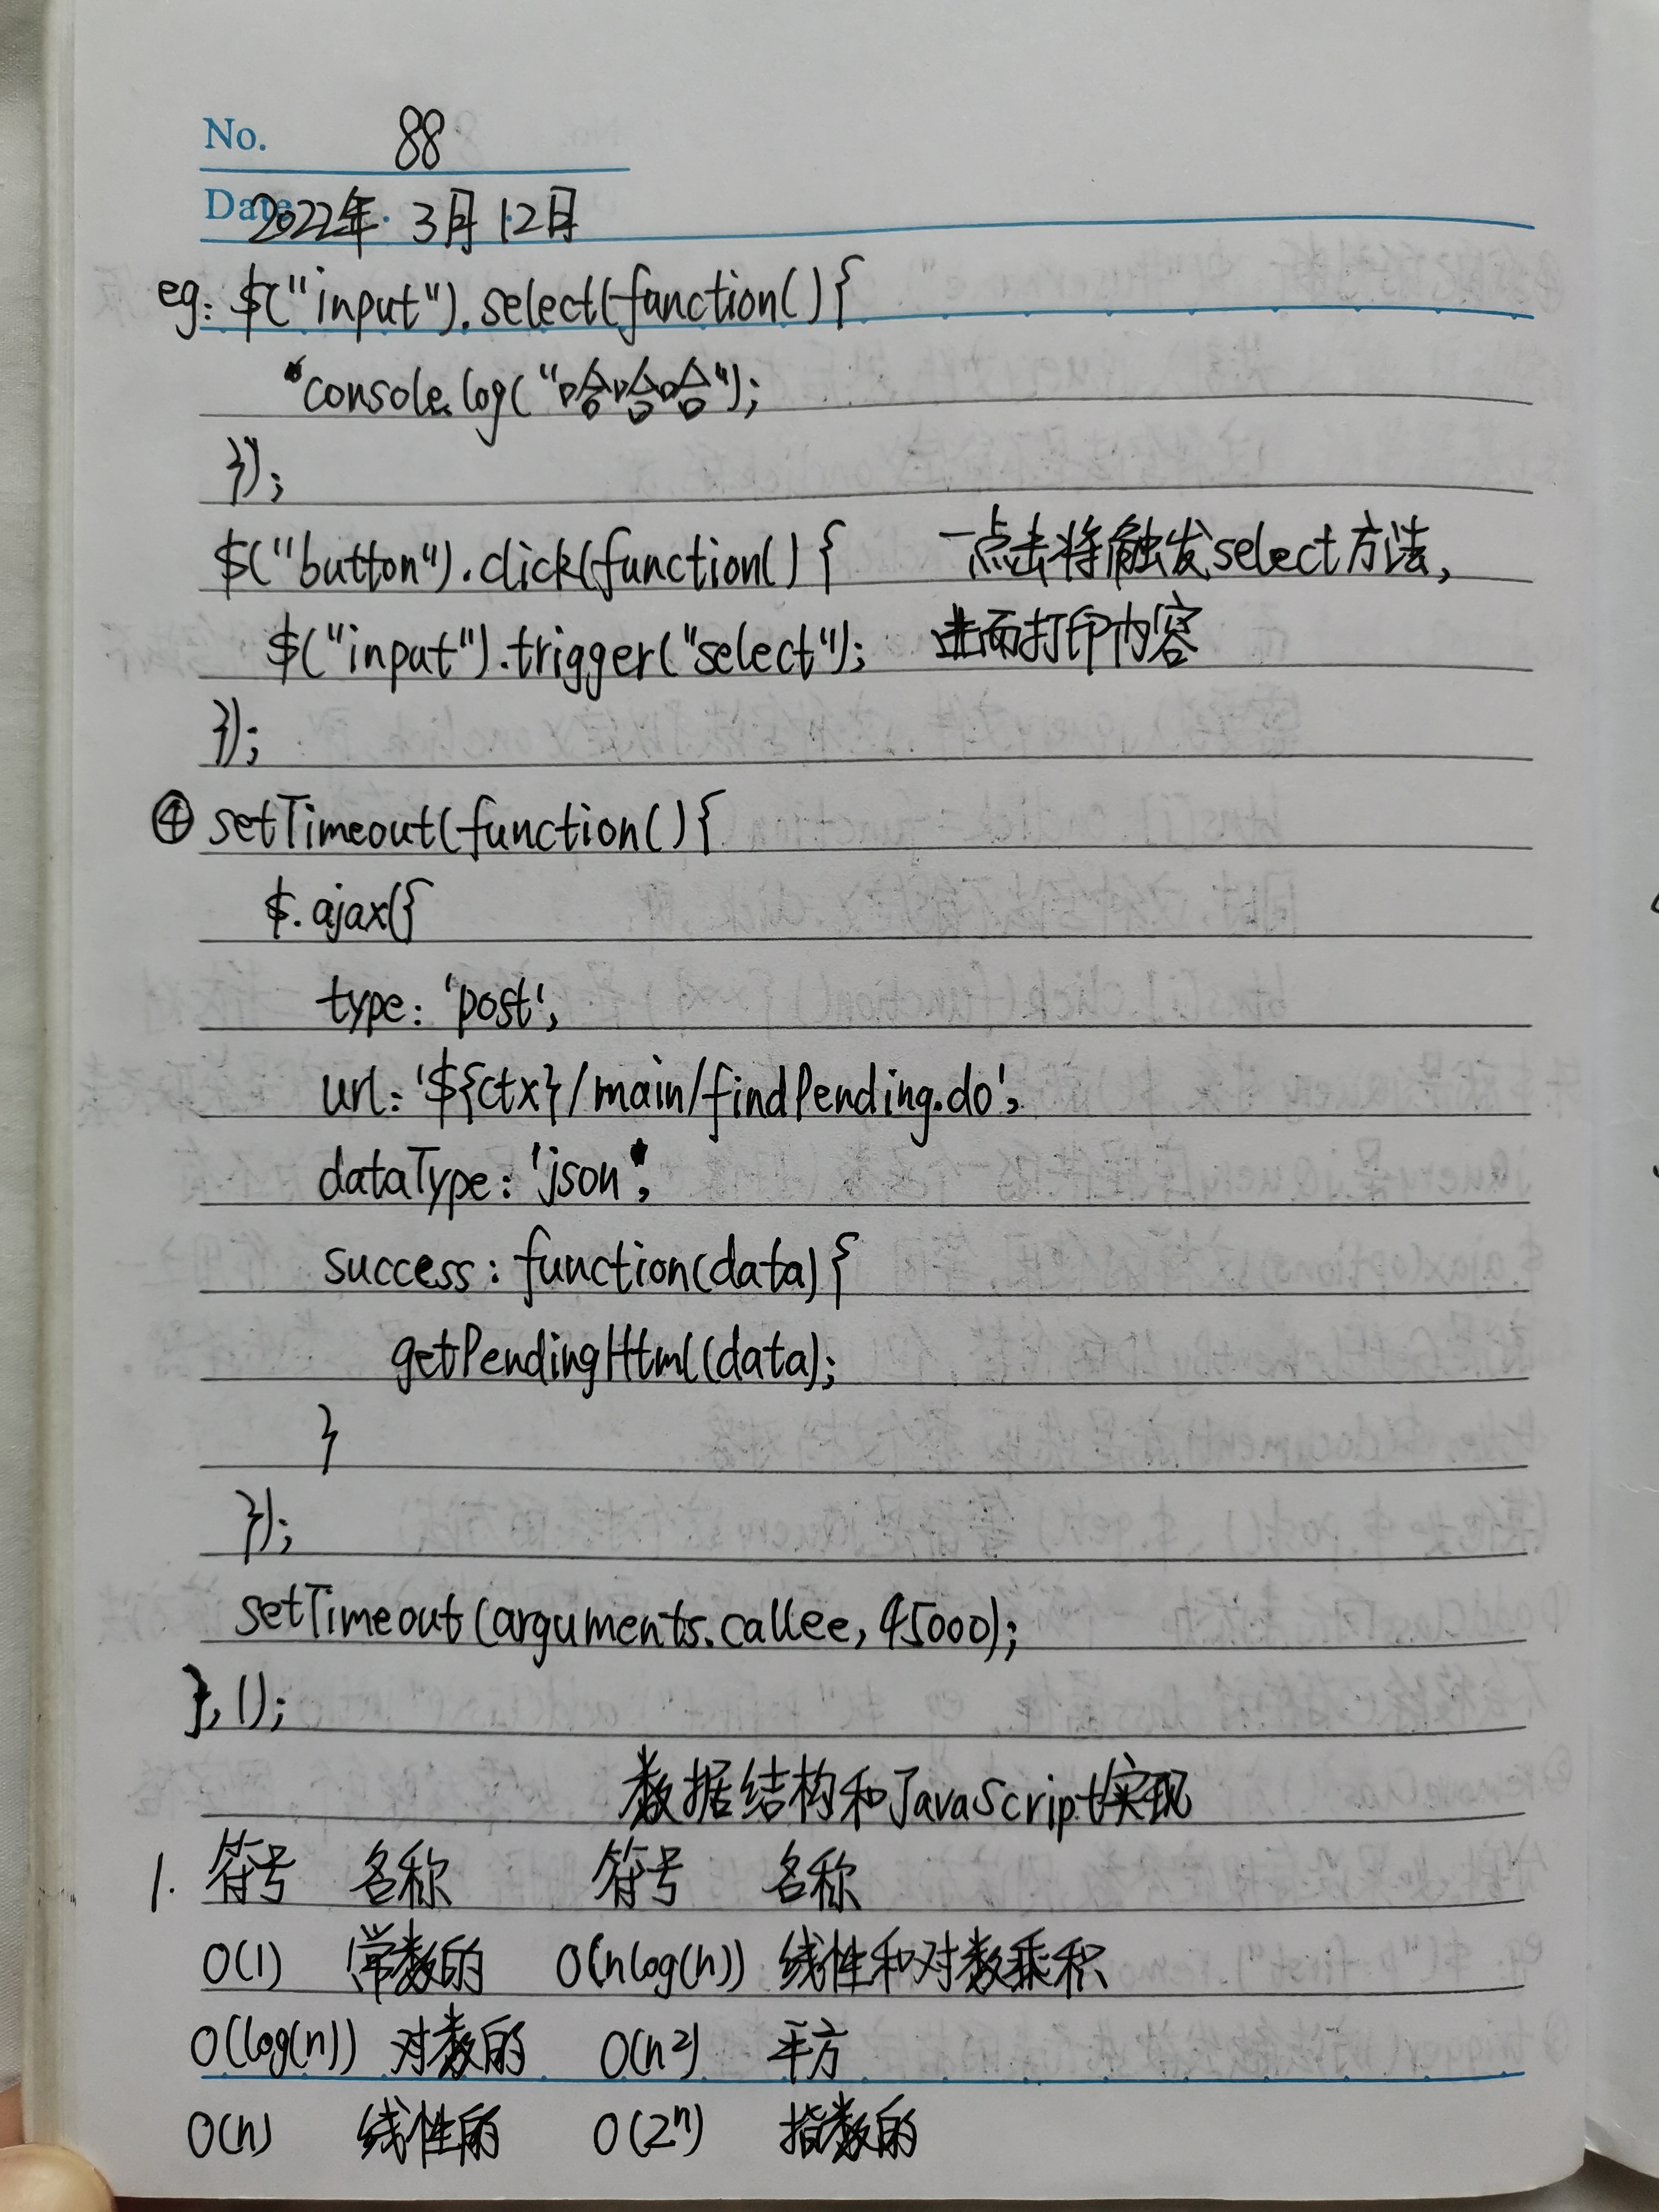 No. 88
Date 2022年 3月 12日
eg: $("input").select(function(){
console.log("哈哈哈");
});
$("button").click(function(){ 一点击将触发select方法,
$("input").trigger("select"); 进而打印内容
});
④ setTimeout(function(){
$.ajax({
type: 'post',
url: '${ctx}/main/findPending.do',
dataType: 'json',
success: function(data){
getPendingHtml(data);
}
});
setTimeout(arguments.callee, 45000);
},1);
数据结构和JavaScript实现
1. 符号 名称 符号 名称
O(1) 常数的 O(nlog(n)) 线性和对数乘积
O(log(n)) 对数的 O(n²) 平方
O(n) 线性的 O(2ⁿ) 指数的